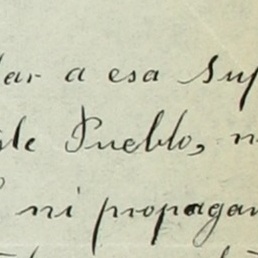 dar a esa sup
ste Pueblo, n
ni propagan